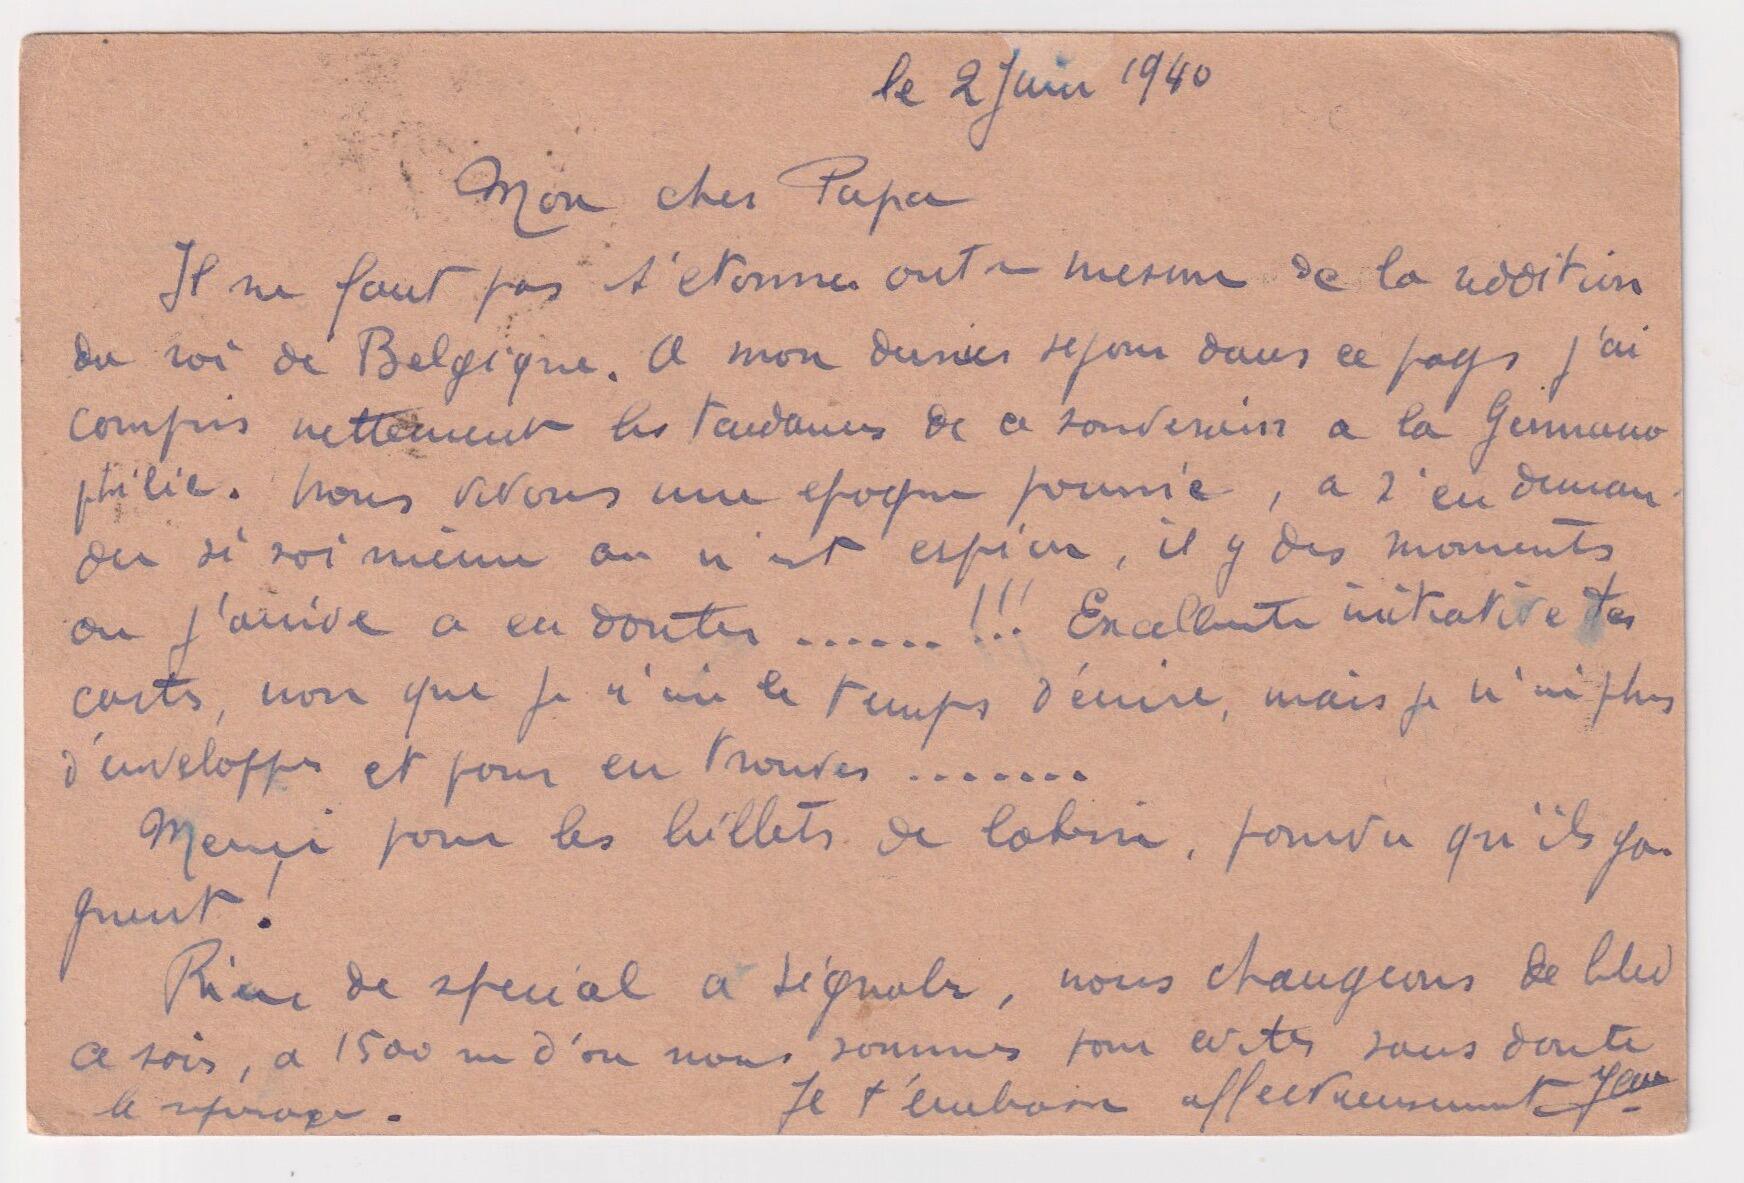 le 2 Juin 1940
Mon cher Papa
Il ne faut pas s'etonner outre mesure de la reddition
du roi de Belgique. A mon dernier sejour dans ce pays j'ai
compris nettement les tendances de ce souverain a la Germano
philie. Nous vivons une epoque pourrie, a s'en deman-
der si soi même on n'est espion, il y des moments
ou j'arrive a en douter ...... !!! Excellente initiative tes
cartes, non que je n'aie le temps d'écrire, mais je n'ai plus
d'enveloppes et pour en trouver .......
Merci pour les billets de loterie, pourvu qu'ils ga
gnent !
Rien de special a signaler, nous changeons de bled
ce soir, a 1500 m d'ou nous sommes pour eviter sans doute
le reperage.
Je t'embrasse affectueusement Jean